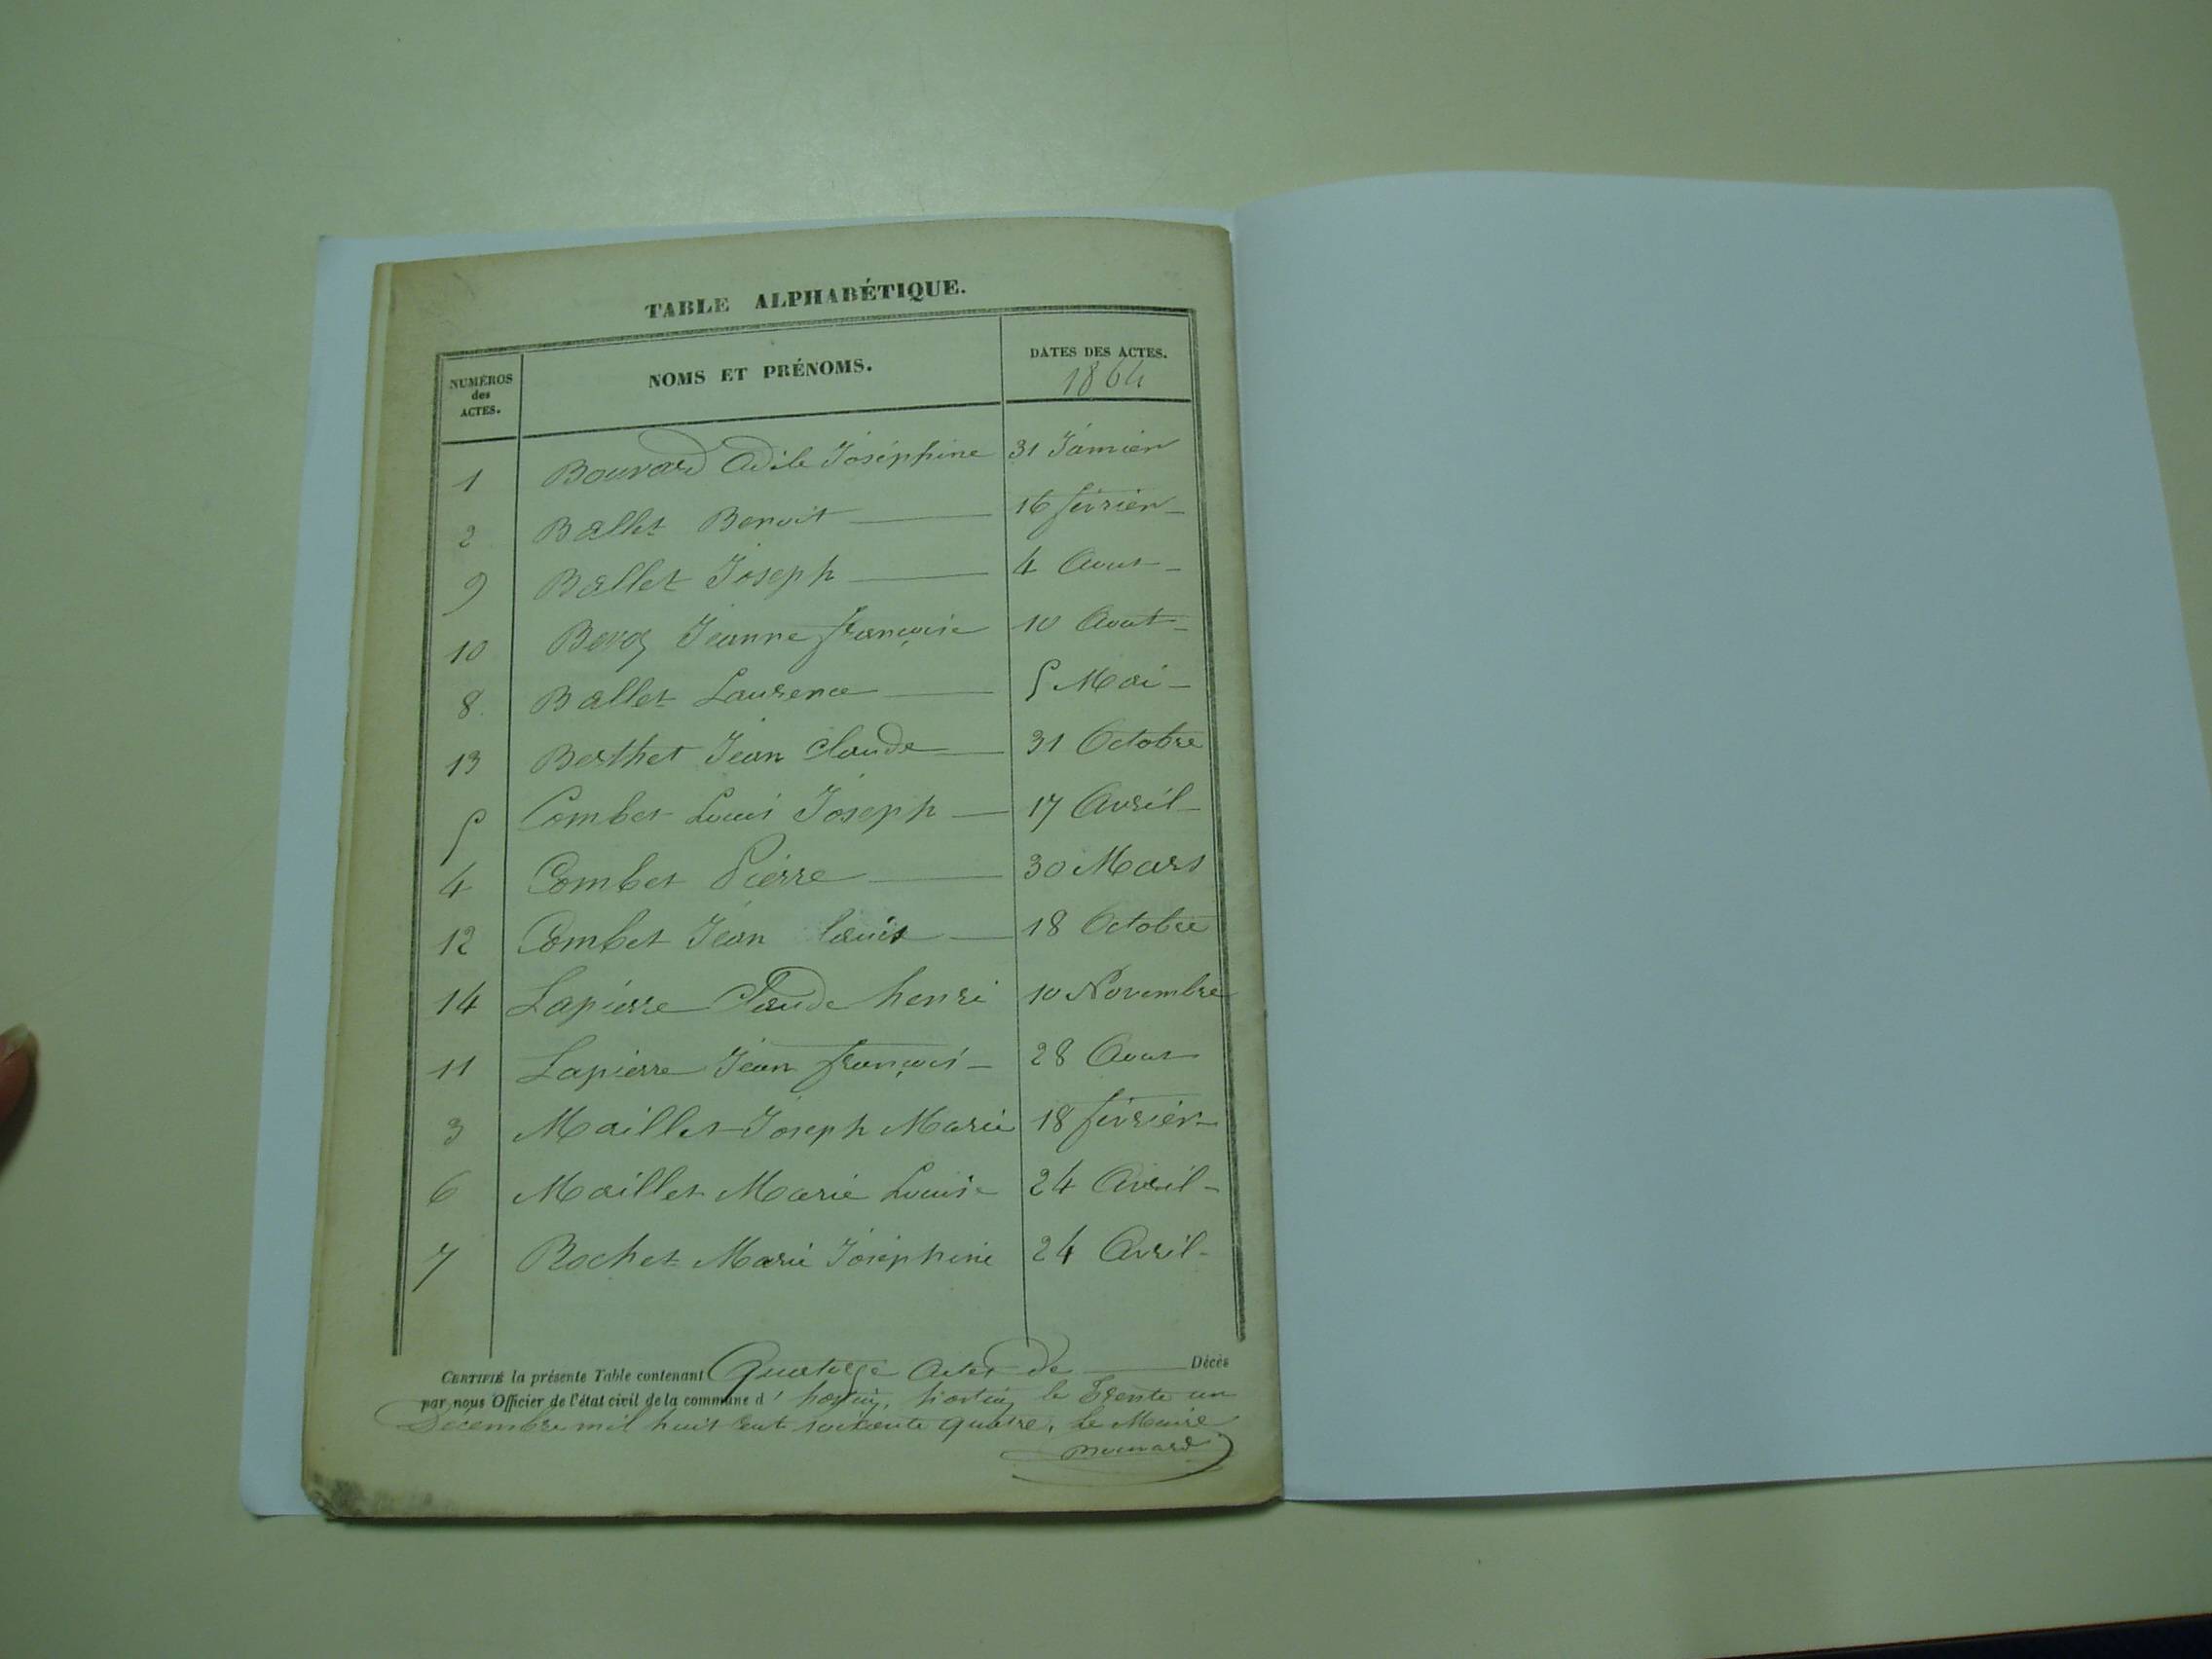 TABLE ALPHABÉTIQUE.
NUMÉROS des ACTES. NOMS ET PRÉNOMS. DATES DES ACTES.
1864
1 Bouvard Adile Joséphine 31 Janvier
2 Ballet Benoit 16 février
9 Ballet Joseph 4 Aout
10 Jeanne françoise 10 Aout
8 Ballet Laurence 5 Mai
13 Berthet Jean Claude 31 Octobre
5 Combet Louis Joseph 17 Avril
4 Combet Pierre 30 Mars
12 Combet Jean Louis 18 Octobre
14 Lapierre Claude henri 10 Novembre
11 Lapierre Jean françois 28 Aout
3 Maillet Joseph Marie 18 février
6 Maillet Marie Louise 24 Avril
7 Rochet Marie Joséphine 24 Avril
CERTIFIÉ la présente Table contenant Quatorze Actes de Décès
par nous Officier de l'état civil de la commune d' le Trente un
Décembre mil huit cent soixante quatre. Le Maire
Bouvard